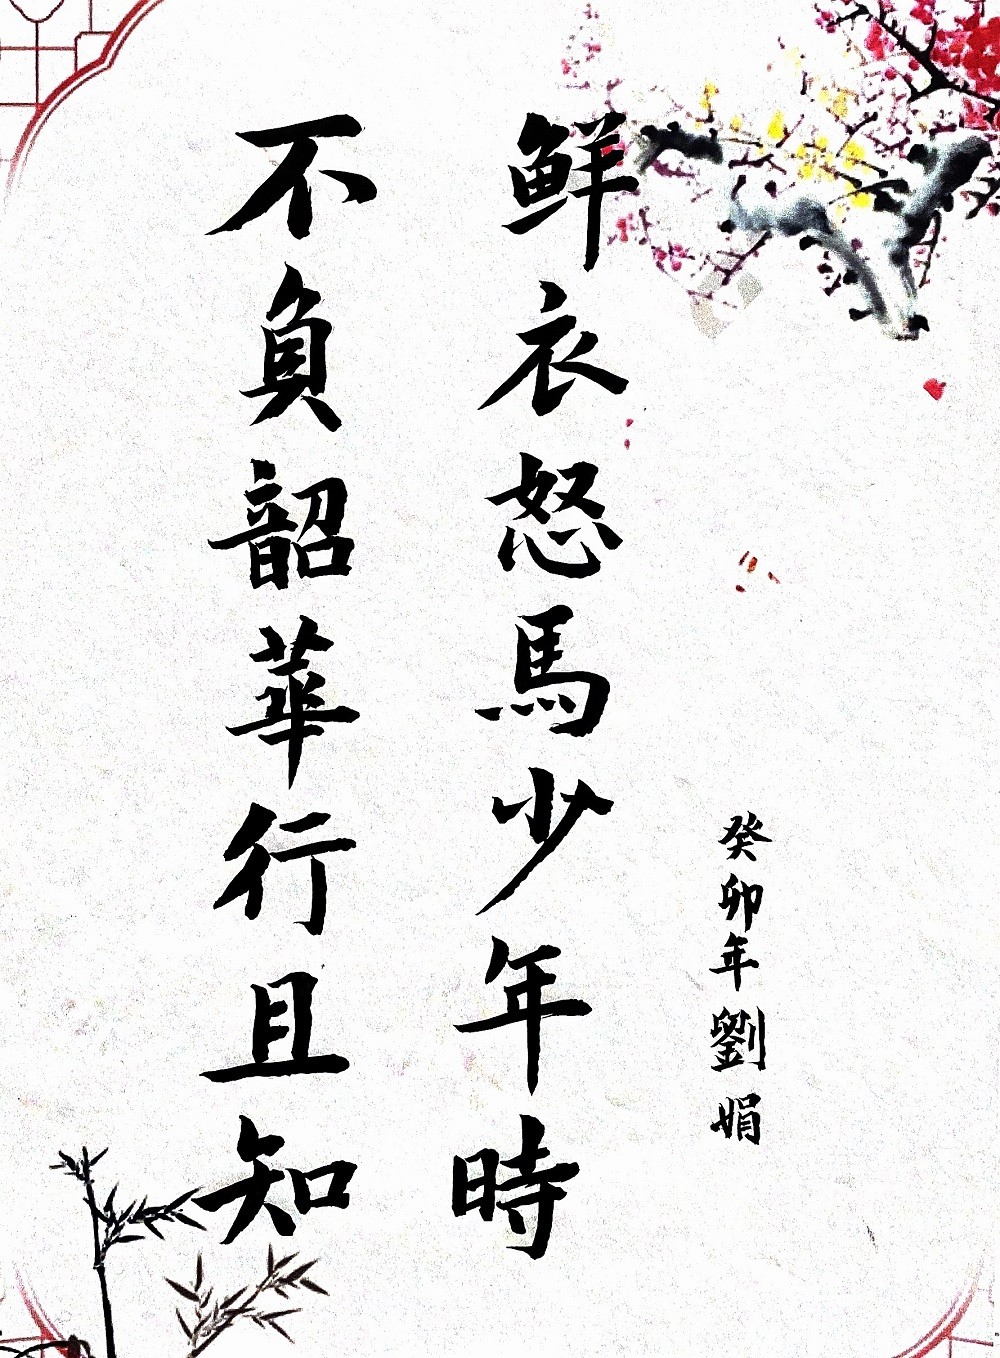 鲜衣怒馬少年時
不負韶華行且知
癸卯年劉娟